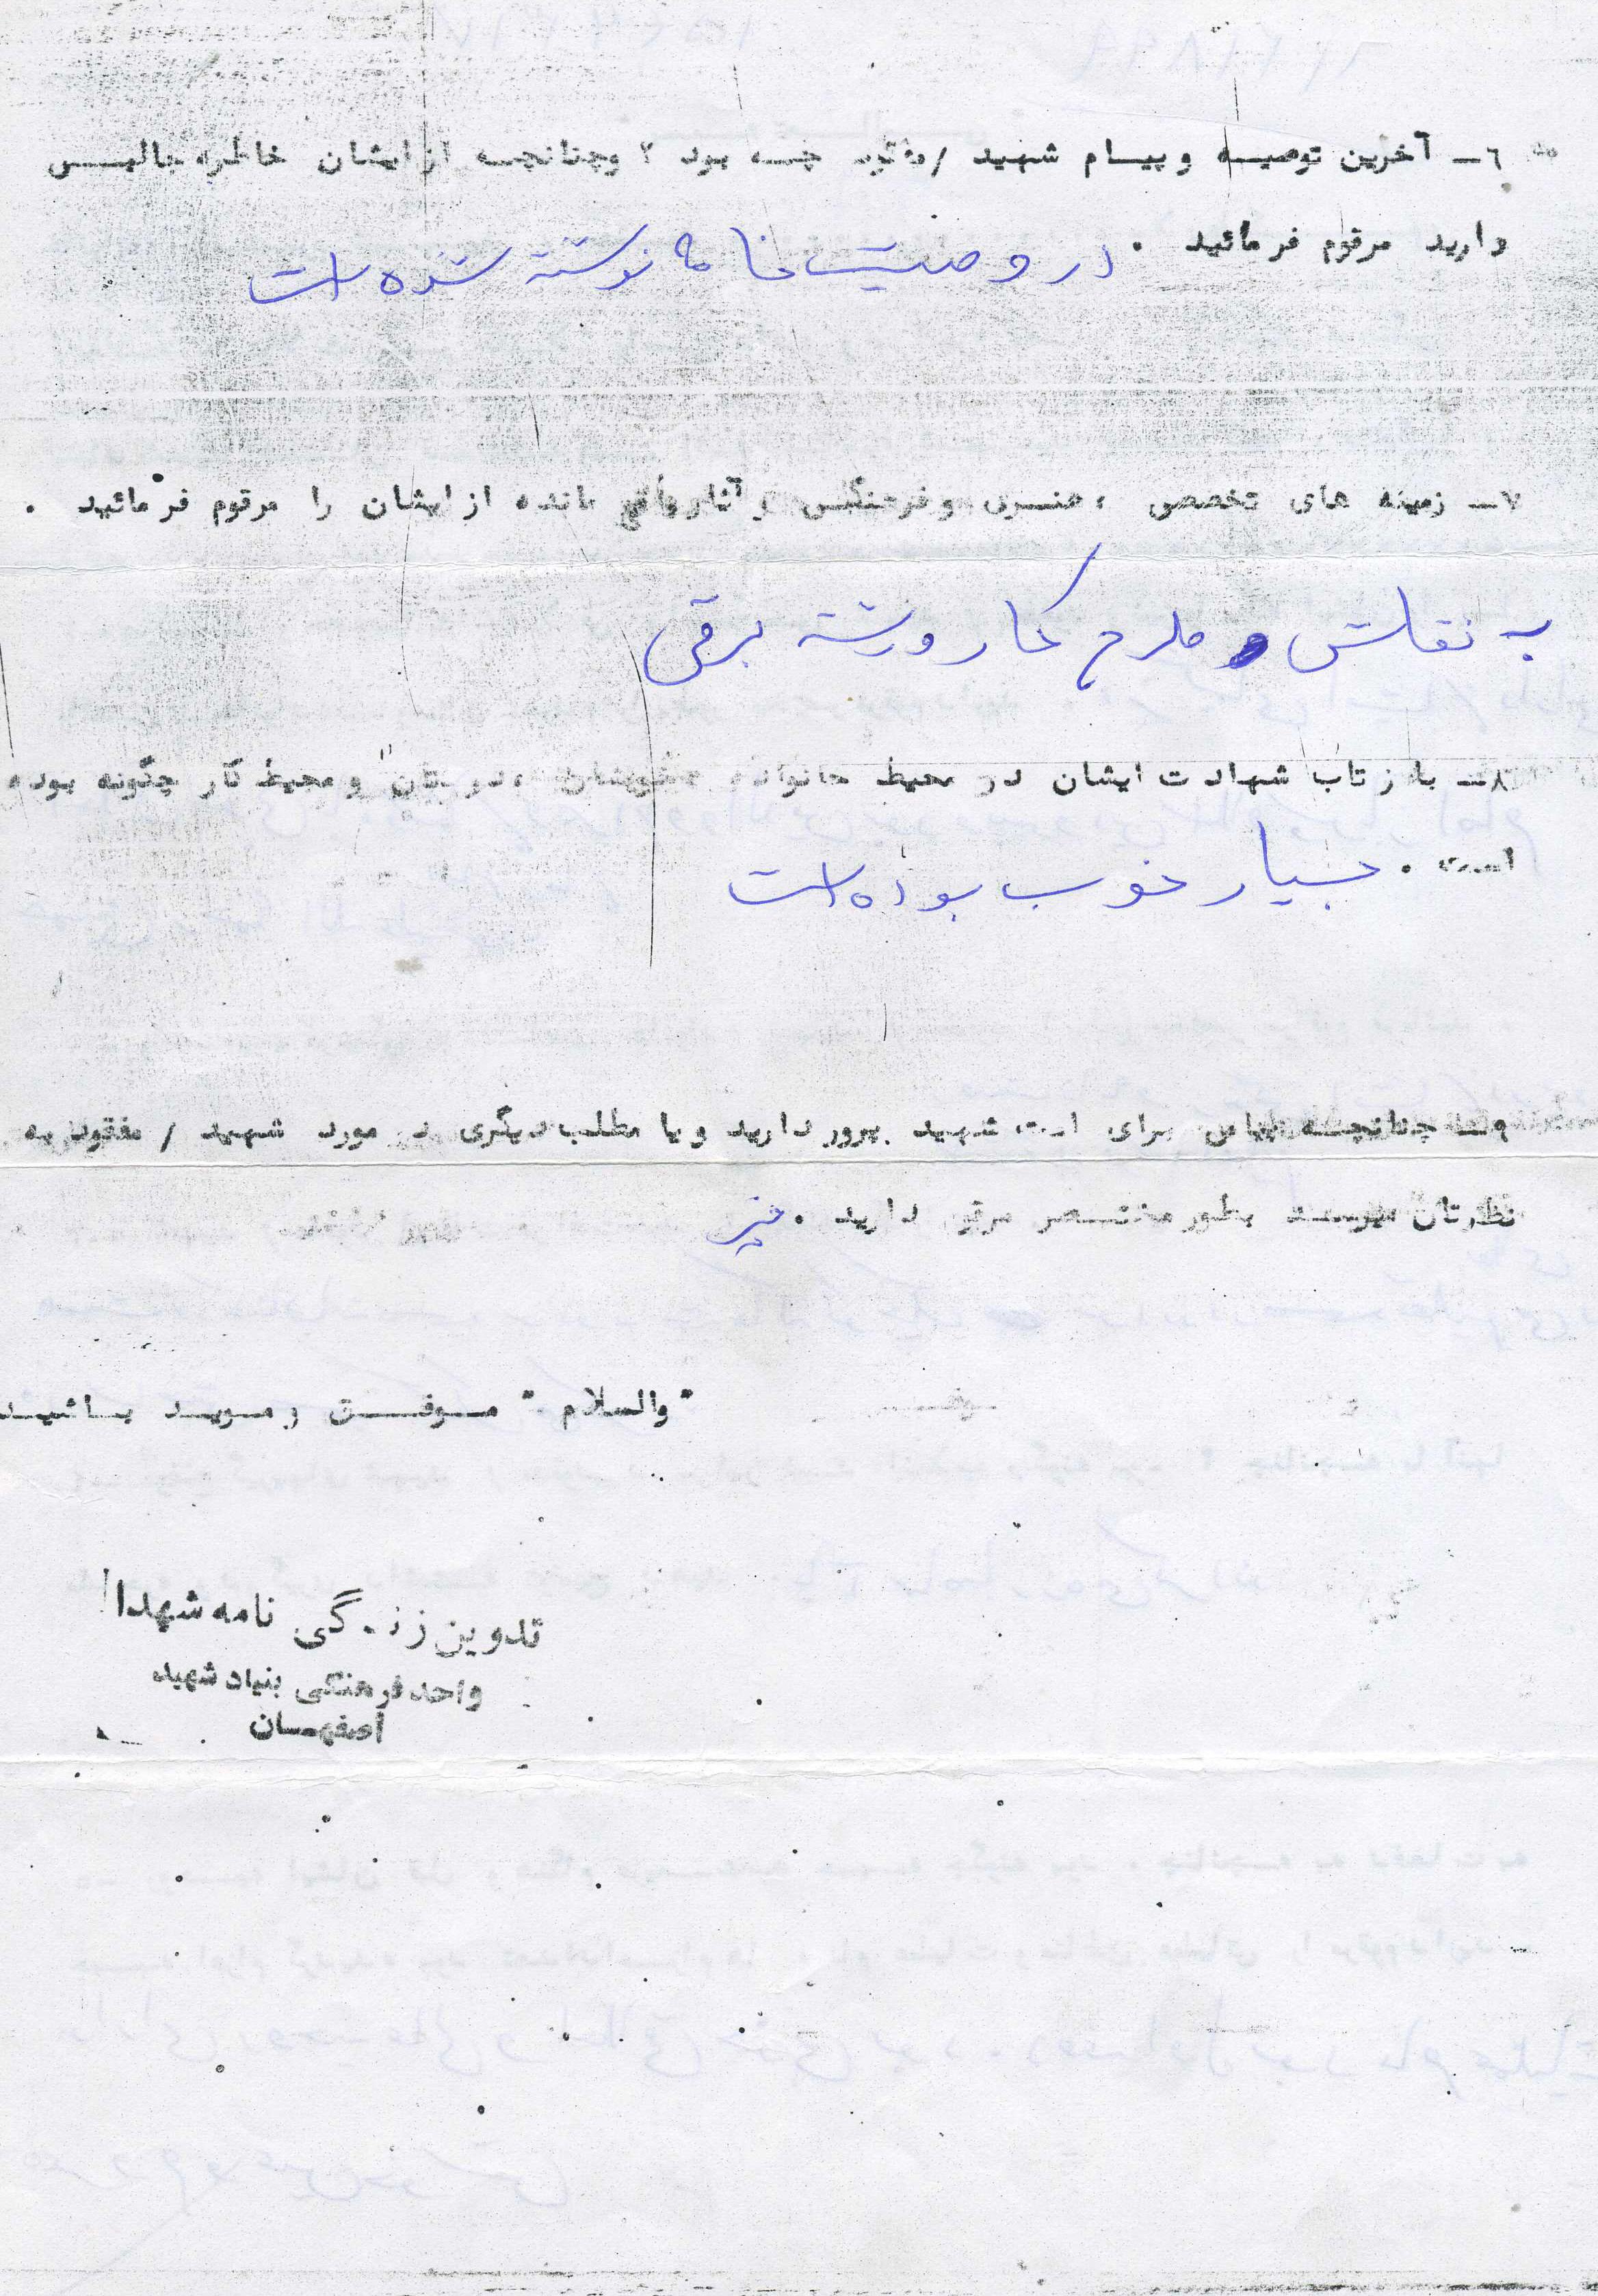 ٦ــ آخرین توصیــه و پیــام شهید / مفقود چــه بود ؟ و چنانچــه از ایشان خاطره جالبــی
دارید مرقوم فرمائید . در وصیت نامه نوشته شده است
۷ــ زمینه های تخصصی ، هنــری و فرهنگــی و آثار باقی مانده از ایشان را مرقوم فرمائید .
به نقاشی و طرح کار و رشته برقی
۸ــ بازتاب شهادت ایشان در محیط خانواده ، خویشان ، دوستان و محیط کار چگونه بوده
است . بسیار خوب بوده است
۹ــ چنانچــه پیامی برای امت شهید پرور دارید و یا مطلب دیگری در مورد شهید / مفقود به
نظرتان میرســد بطور مختــصر مرقوم دارید . خیر
" والسلام " مــوفــق و مــویــد بــاشیــد
تدوین زندگی نامه شهدا
واحد فرهنگی بنیاد شهید
اصفهــان